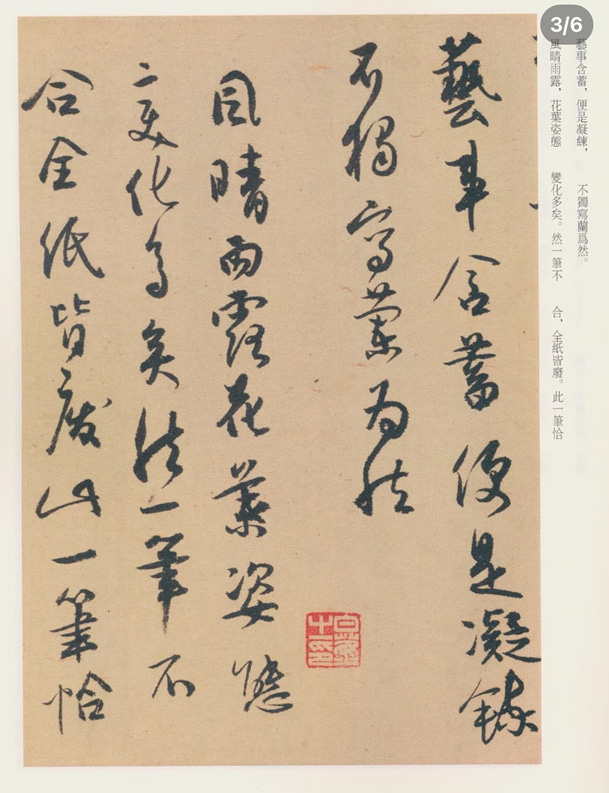 3/6
藝事含蓄，便是凝練，　不獨寫蘭爲然。
風晴雨露，花葉姿態　變化多矣。然一筆不　合，全紙皆廢。此一筆恰
藝事含蓄便是凝鍊
不獨寫蘭為然
風晴雨露花葉姿態
變化多矣然一筆不
合全紙皆廢此一筆恰